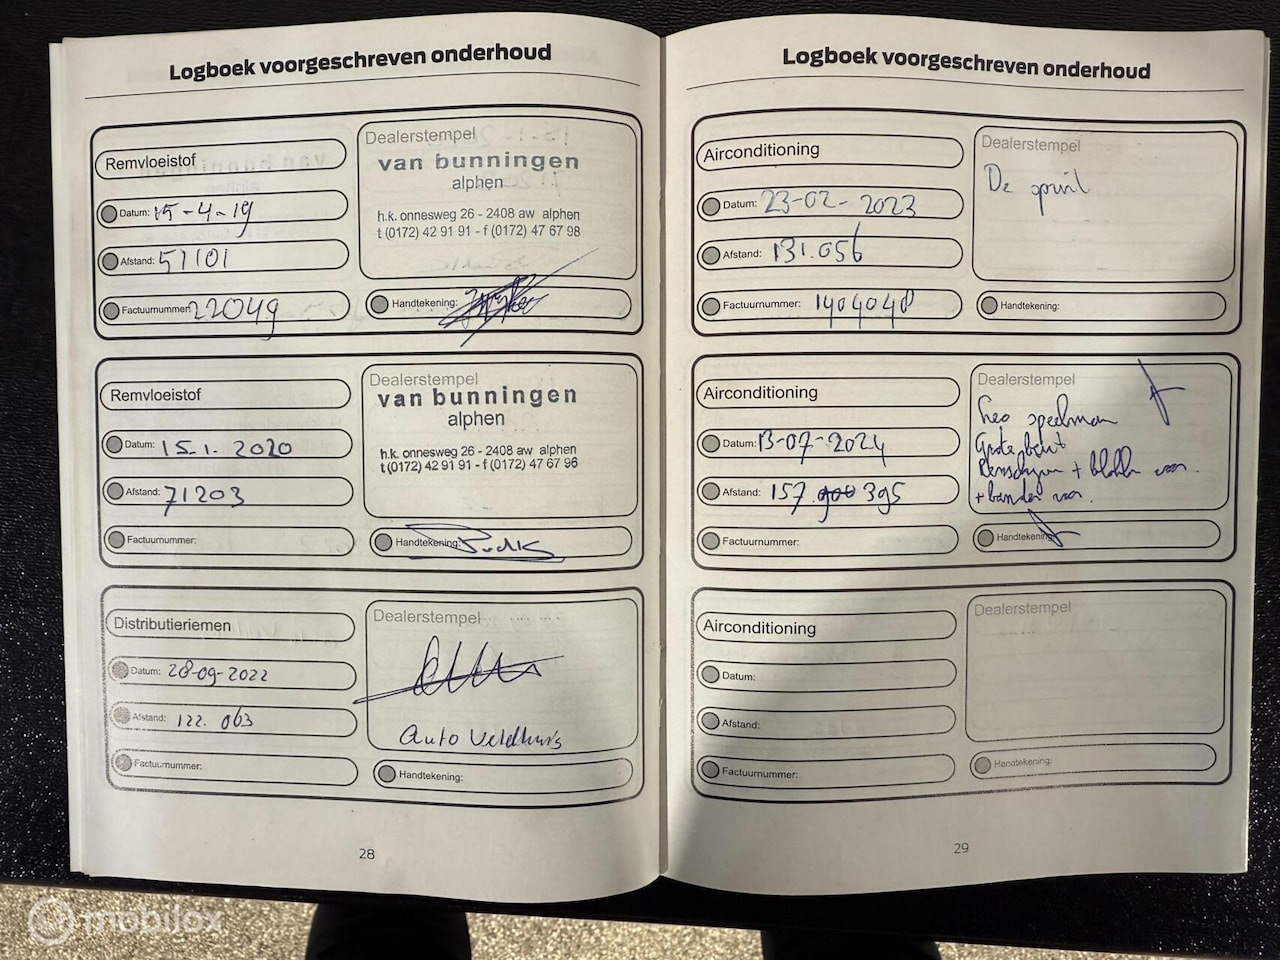 Logboek voorgeschreven onderhoud
Remvloeistof
Datum: 15-4-19
Afstand: 51101
Factuurnummer: 22049
Dealerstempel
van bunningen
alphen
h.k. onnesweg 26 - 2408 aw alphen
t (0172) 42 91 91 - f (0172) 47 67 98
Handtekening:
Remvloeistof
Datum: 15.1. 2020
Afstand: 71203
Factuurnummer:
Dealerstempel
van bunningen
alphen
h.k. onnesweg 26 - 2408 aw alphen
t (0172) 42 91 91 - f (0172) 47 67 96
Handtekening:
Distributieriemen
Datum: 28-09-2022
Afstand: 122. 063
Factuurnummer:
Dealerstempel
Auto Veldhuis
Handtekening:
28
Logboek voorgeschreven onderhoud
Airconditioning
Datum: 23-02-2023
Afstand: 131.056
Factuurnummer: 1404048
Dealerstempel
De
Handtekening:
Airconditioning
Datum: 13-07-2024
Afstand: 157. 395
Factuurnummer:
Dealerstempel
speelman
Grote beurt
Remschijven + blokken voor.
+ banden voor.
Handtekening:
Airconditioning
Datum:
Afstand:
Factuurnummer:
Dealerstempel
Handtekening:
29
mobilox